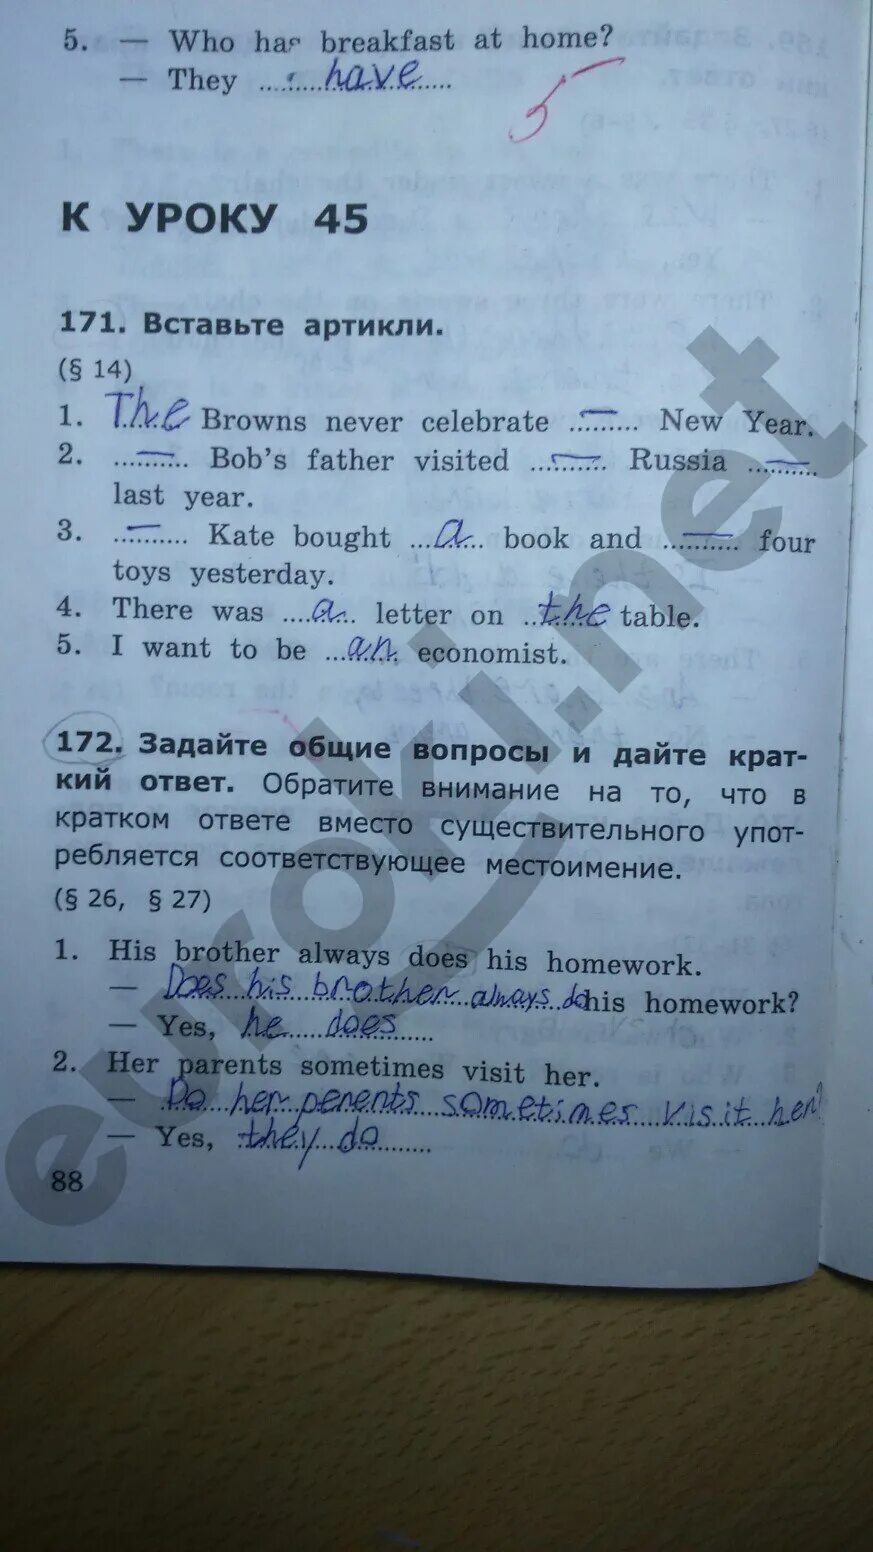 5. — Who has breakfast at home?
— They have
5
К УРОКУ 45
171. Вставьте артикли.
(§ 14)
1. The Browns never celebrate — New Year.
2. — Bob's father visited — Russia —
last year.
3. — Kate bought a book and — four
toys yesterday.
4. There was a letter on the table.
5. I want to be an economist.
172. Задайте общие вопросы и дайте крат-
кий ответ. Обратите внимание на то, что в
кратком ответе вместо существительного упот-
ребляется соответствующее местоимение.
(§ 26, § 27)
1. His brother always does his homework.
— Does his brother always do his homework?
— Yes, he does
2. Her parents sometimes visit her.
— Do her perents sometimes visit her?
— Yes, they do
88
euroki.net